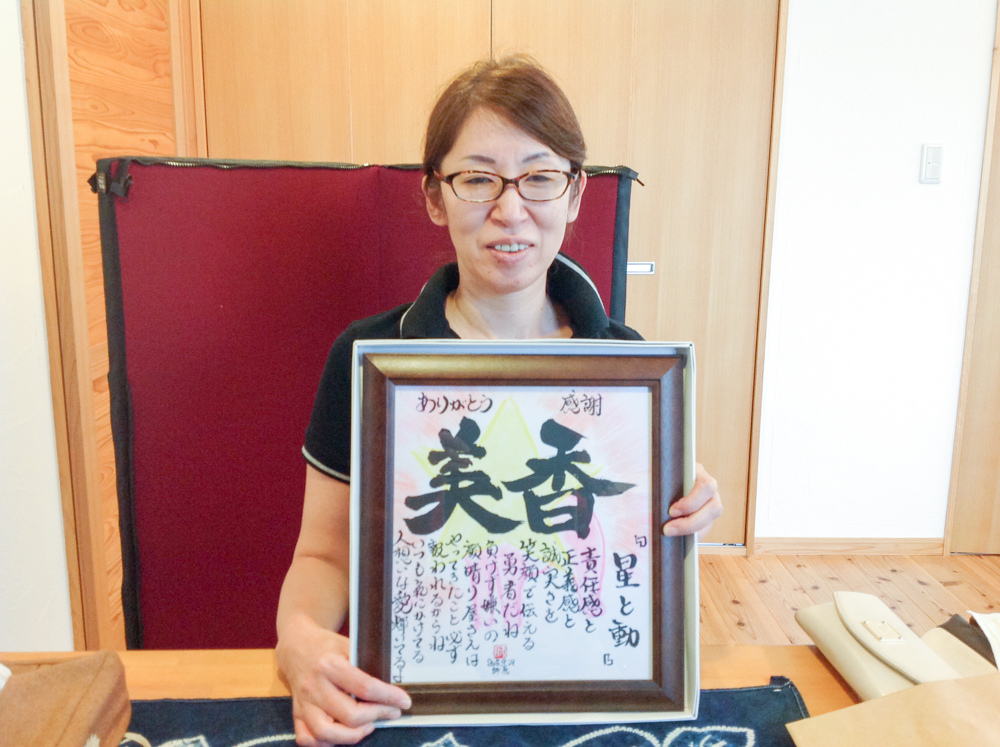 ありがとう
感謝
美香
『星と動』
責任感と
正義感と
誠実さを
笑顔で伝える
勇者だね
負けず嫌いの
顔晴り屋さんは
やってきたこと必ず
報われるからね
いつも気にかけてる